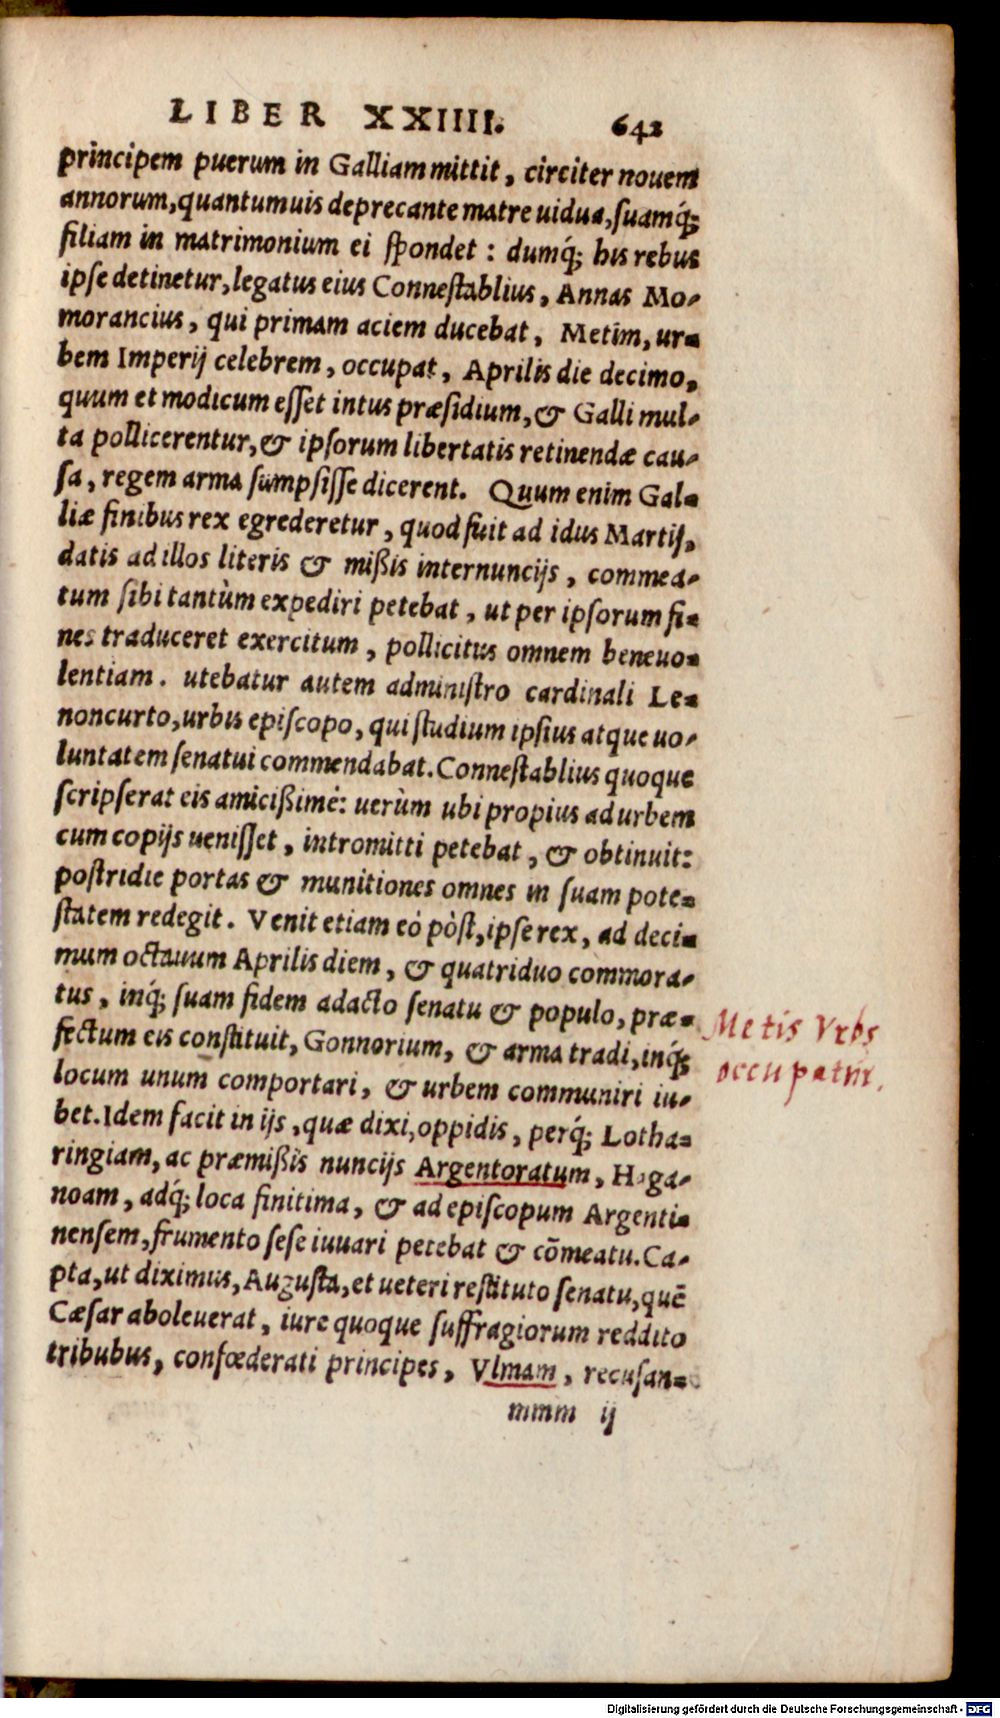 LIBER XXIIII. 642
principem puerum in Galliam mittit, circiter nouem
annorum, quantumuis deprecante matre uidua, suamq́;
filiam in matrimonium ei spondet: dumq́; his rebus
ipse detinetur, legatus eius Connestablius, Annas Mo-
morancius, qui primam aciem ducebat, Metim, ur-
bem Imperij celebrem, occupat, Aprilis die decimo,
quum et modicum esset intus præsidium, & Galli mul-
ta pollicerentur, & ipsorum libertatis retinendæ cau-
sa, regem arma sumpsisse dicerent. Quum enim Gal-
liæ finibus rex egrederetur, quod fuit ad idus Martij,
datis ad illos literis & mißis internuncijs, commea-
tum sibi tantùm expediri petebat, ut per ipsorum fi-
nes traduceret exercitum, pollicitus omnem beneuo-
lentiam. utebatur autem administro cardinali Le-
noncurto, urbis episcopo, qui studium ipsius atque uo-
luntatem senatui commendabat. Connestablius quoque
scripserat eis amicißimè: uerùm ubi propius ad urbem
cum copijs uenisset, intromitti petebat, & obtinuit:
postridie portas & munitiones omnes in suam pote-
statem redegit. Venit etiam eò pòst, ipse rex, ad deci-
mum octauum Aprilis diem, & quatriduo commora-
tus, inq́; suam fidem adacto senatu & populo, præ-
fectum eis constituit, Gonnorium, & arma tradi, inq́;
locum unum comportari, & urbem communiri iu-
bet. Idem facit in ijs, quæ dixi, oppidis, perq́; Lotha-
ringiam, ac præmißis nuncijs Argentoratum, Haga-
noam, adq́; loca finitima, & ad episcopum Argenti-
nensem, frumento sese iuuari petebat & cõmeatu. Ca-
pta, ut diximus, Augusta, et ueteri restituto senatu, quẽ
Cæsar aboleuerat, iure quoque suffragiorum reddito
tribubus, confœderati principes, Vlmam, recusan-
mmm ij
Metis Vrbs
occupatur.
Digitalisierung gefördert durch die Deutsche Forschungsgemeinschaft - DFG